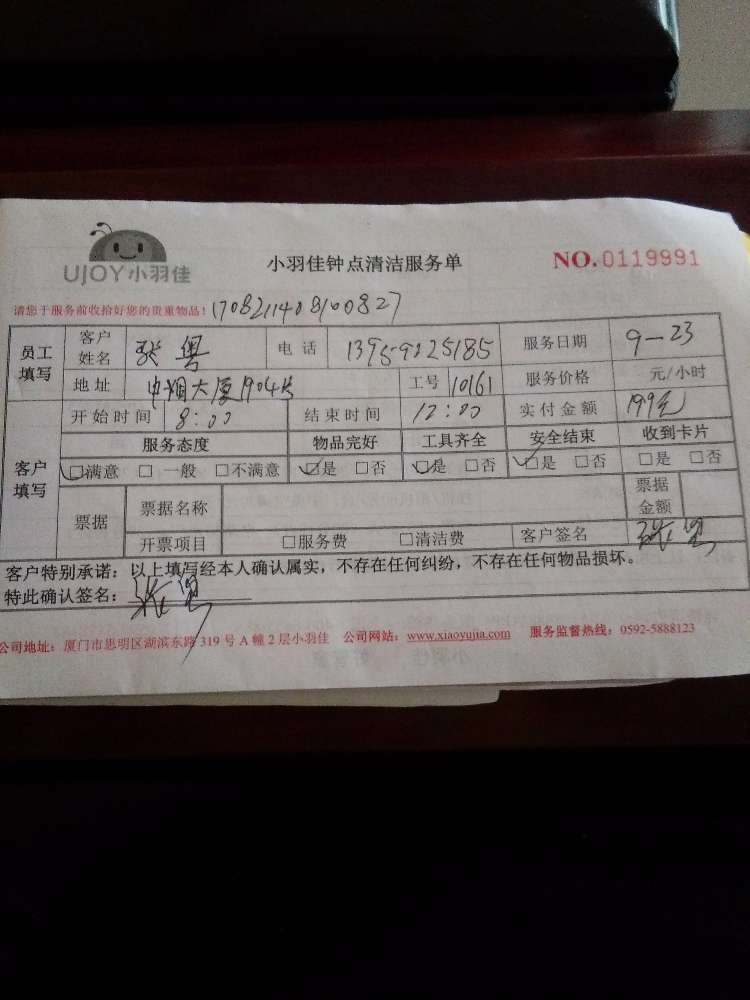 UJOY小羽佳
小羽佳钟点清洁服务单
NO.0119991
请您于服务前收拾好您的贵重物品！
员工填写 客户姓名 张粤 电话 13959025185 服务日期 9-23
地址 中烟大厦1904 工号 10161 服务价格 元/小时
开始时间 8:00 结束时间 12:00 实付金额 199元
客户填写 服务态度 物品完好 工具齐全 安全结束 收到卡片
☑满意 □一般 □不满意 ☑是 □否 ☑是 □否 ☑是 □否 □是 □否
票据 票据名称 票据金额
开票项目 □服务费 □清洁费 客户签名 张粤
客户特别承诺：以上填写经本人确认属实，不存在任何纠纷，不存在任何物品损坏。
特此确认签名：张粤
公司地址：厦门市思明区湖滨东路 319 号 A 幢 2 层小羽佳 公司网站：www.xiaoyujia.com 服务监督热线：0592-5888123